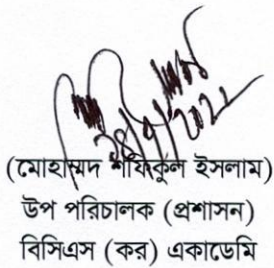 ২৪/৭/২০২২
(মোহাম্মদ শফিকুল ইসলাম)
উপ পরিচালক (প্রশাসন)
বিসিএস (কর) একাডেমি